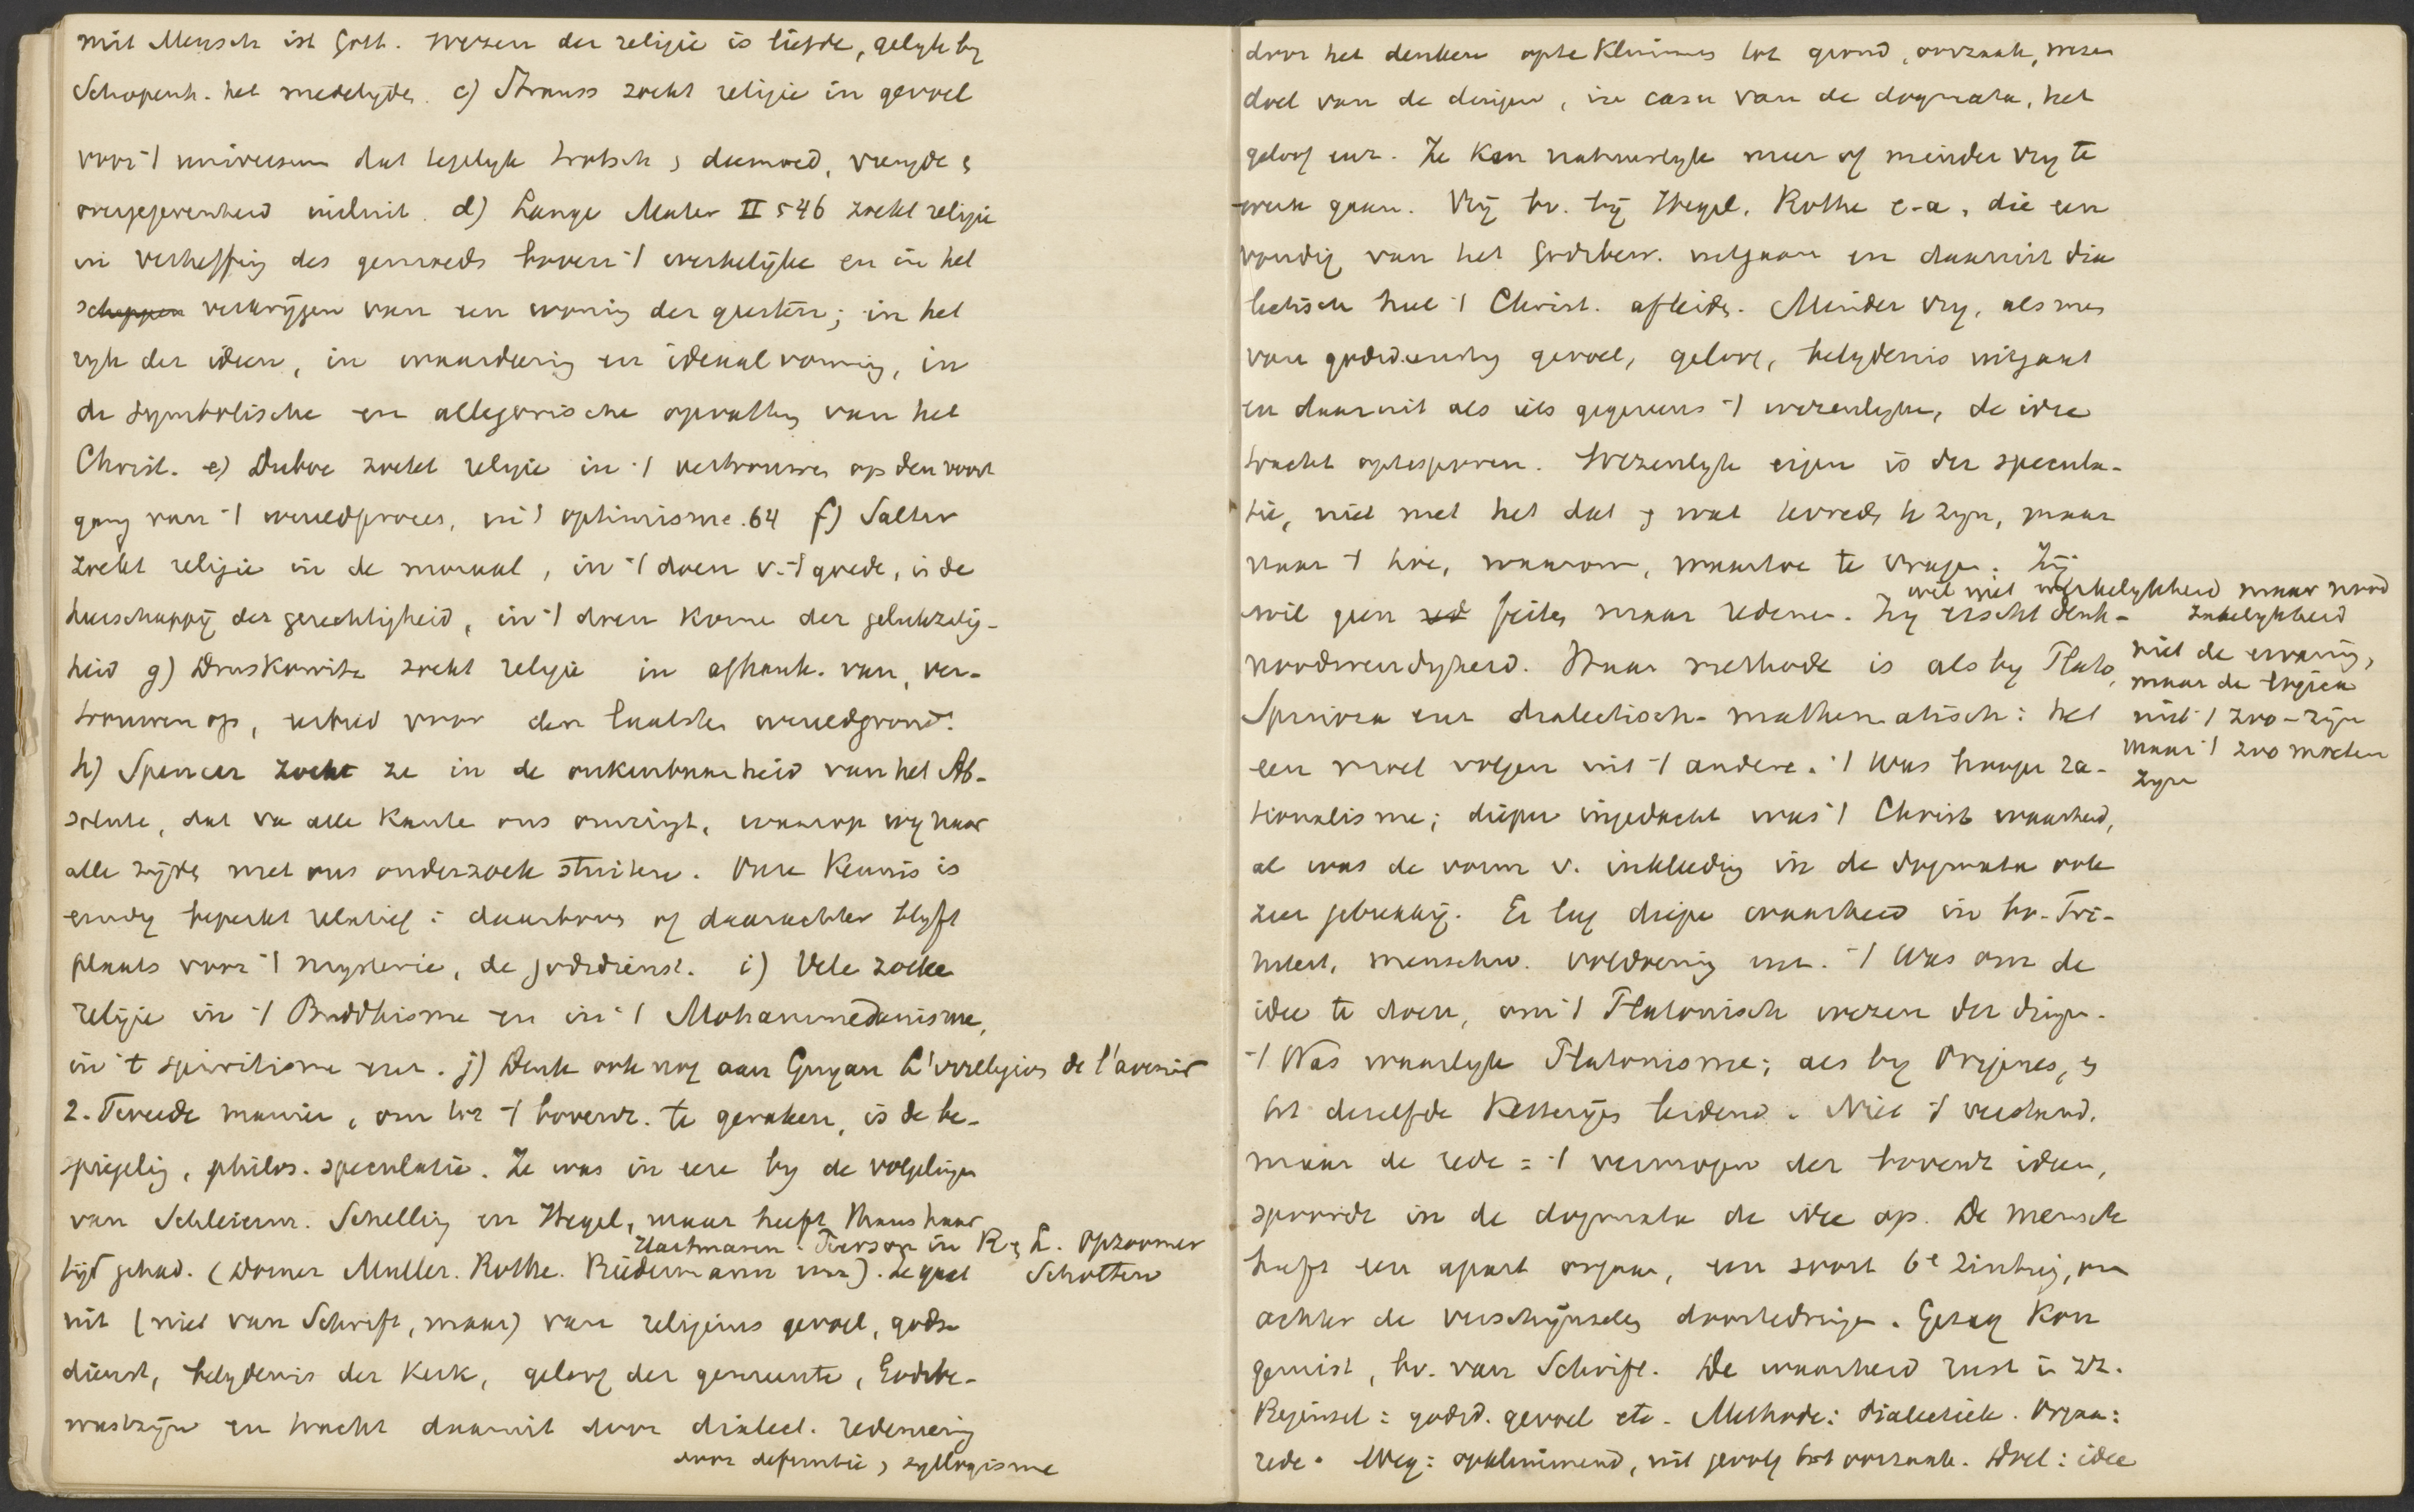 mit Mensch ist Gott. wezen der religie is liefde, gelyk by
Schopenh. het medelyden. c) Strauss zoekt religie in gevoel
voor 't universum dat tegelyk trotsch & deemoed, vreugde &
overgegevenheid insluit. d) Lange Mater II 546 zoekt religie
in verheffing des gemoeds boven 't werkelijke en in het
scheppen verkrijgen van een woning der geesten; in het
ryk der ideen, in waardering en ideaalvorming, in
de symbolische en allegorische opvatting van het
Christ. e) Duboc zoekt religie in 't vertrouwen op den voort
gang van 't wereldproces, in 't optimisme. 64 f) Salter
zoekt religie in de moraal, in 't doen v. 't goede, in de
heerschappij der gerechtigheid, in 't doen komen der gelukzalig-
heid g) Druskowitz zoekt religie in afhank. van, ver-
trouwen op, eerbied voor den laatsten wereldgrond.
h) Spencer zoekt ze in de onkenbaarheid van het Ab-
solute, dat va alle kanten ons omringt, waarop wy naar
alle zijden met ons onderzoek stuiten. Onze kennis is
eindig beperkt relatief: daarboven of daarachter blyft
plaats voor 't mysterie, de godsdienst. i) Vele zoeken
religie in 't Buddhisme en in 't Mohammedanisme,
in 't spiritisme enz. j) Denk ook nog aan Guyau L'irreligion de l'avenir
2. Tweede manier, om tot 't bovenz. te geraken, is de be-
spiegeling, philos. speculatie. Ze was in eere by de volgelingen
van Schleierm. Schelling en Hegel, maar heeft thans haar
Hartmann. Pierson in R & L. Opzoomer
tijd gehad. (Dorner Muller. Rothe. Biedermann enz). Ze gaat Scholten
uit (niet van Schrift, maar) van religieus gevoel, gods-
dienst, belydenis der kerk, geloof der gemeente, Godsbe-
wustzijn en tracht daaruit door dialect. redenering
door definitie, syllogisme
door het denken opteklimmen tot grond, oorzaak, wezen
doel van de dingen, in casu van de dogmata, het
geloof enz. Ze kan natuurlyk meer of minder vry te
werk gaan. Vrij bv. bij Hegel, Rothe e.a., die een
voudig van het Godsbew. uitgaan en daaruit dia
lectisch heel 't Christ. afleiden. Minder vry, als men
van godsdienstig gevoel, geloof, belydenis uitgaat
en daaruit als iets gegevens 't wezenlyke, de idee
tracht optesporen. Wezenlyk eigen is der specula-
tie, niet met het dat & wat tevreden te zyn, maar
naar 't hoe, waarom, waartoe te vragen. Zij
wil niet werkelykheid maar nood
zakelykheid
wil geen red feiten maar redenen. Zy eischt denk-
niet de ervaring,
noodwendigheid. Haar methode is als by Plato,
maar de logica
Spinoza enz dialectisch-mathematisch: het
niet 't zoo-zijn
maar 't zoo moeten
een moet volgen uit 't andere. 't Was hooger ra-
zyn
tionalisme; dieper ingedacht was 't Christ waarheid,
al was de vorm v. inkleeding in de dogmata ook
zeer gebrekkig. Er lag diepe waarheid in bv. Tri-
niteit, menschw. voldoening enz. 't Was om de
idee te doen, om 't Platonisch wezen der dingen.
't Was waarlyk Platonisme; als by Origenes, &
tot dezelfde ketterijen leidend. Niet 't verstand,
maar de rede = 't vermogen der bovenz ideen,
spoorde in de dogmata de idee op. De mensch
heeft een apart orgaan, een soort 6e zintuig, om
achter de verschijnselen doortedringen. Gezag kon
gemist, bv. van Schrift. De waarheid rust in zz.
Beginsel: godsd. gevoel etc. Methode: dialectiek. Orgaan:
rede. Weg: opklimmend, uit gevolg tot oorzaak. Doel: idee